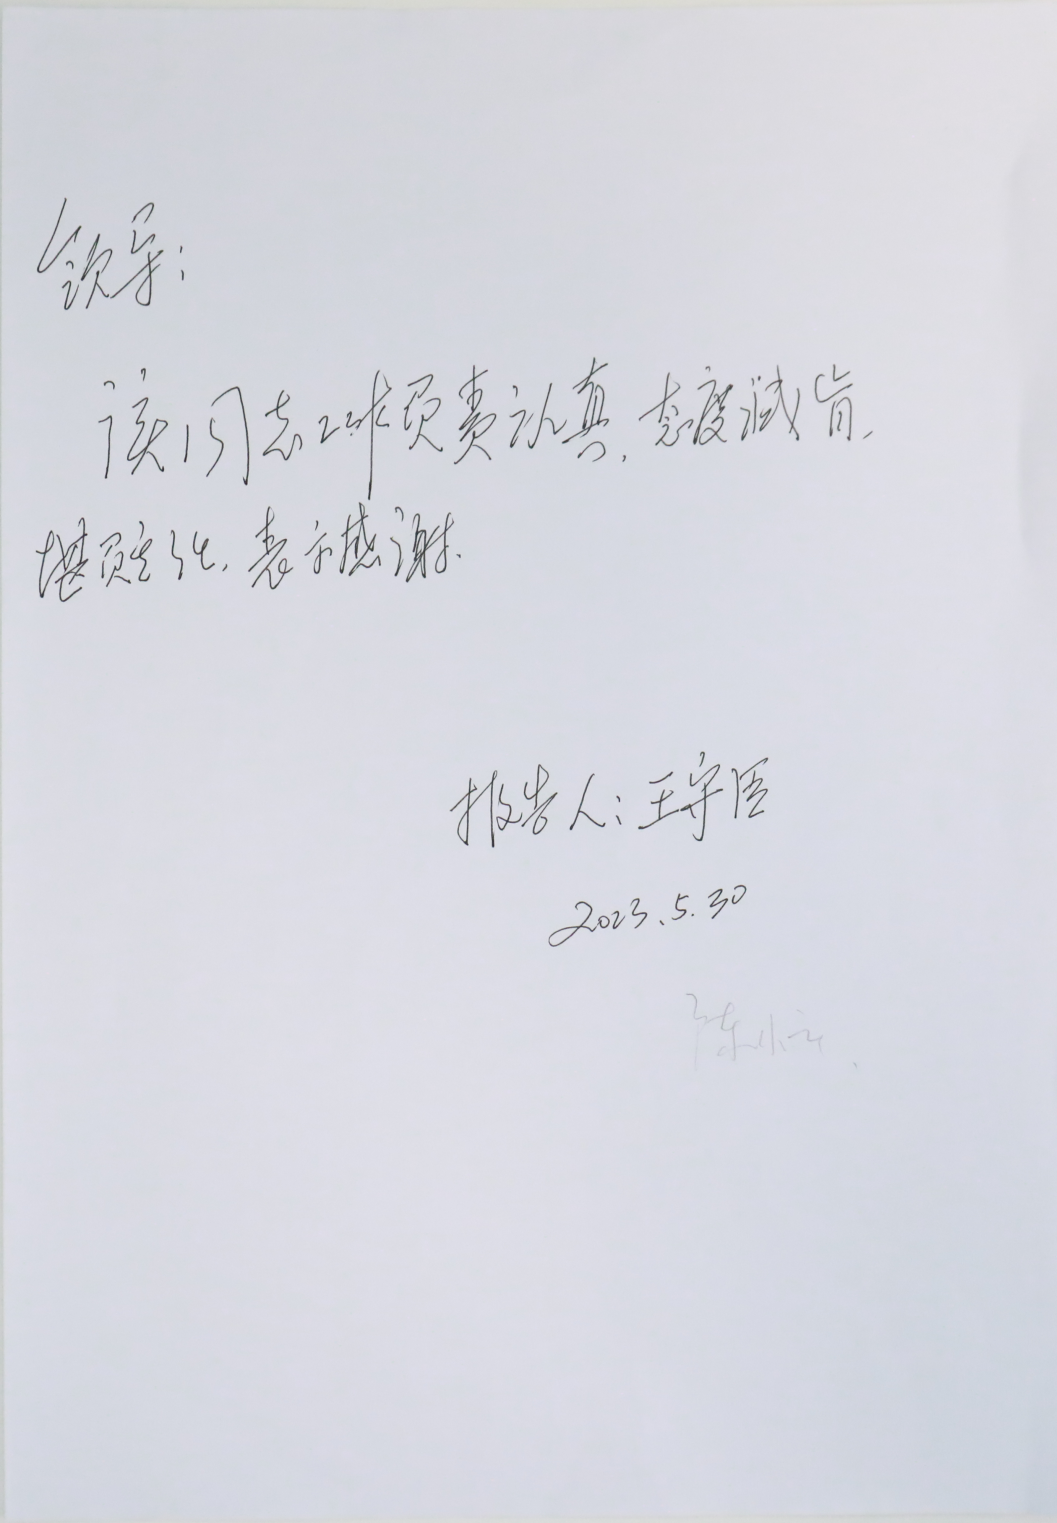 领导:
该同志工作负责认真,态度诚肯,
表示感谢.
报告人:王守臣
2023.5.30